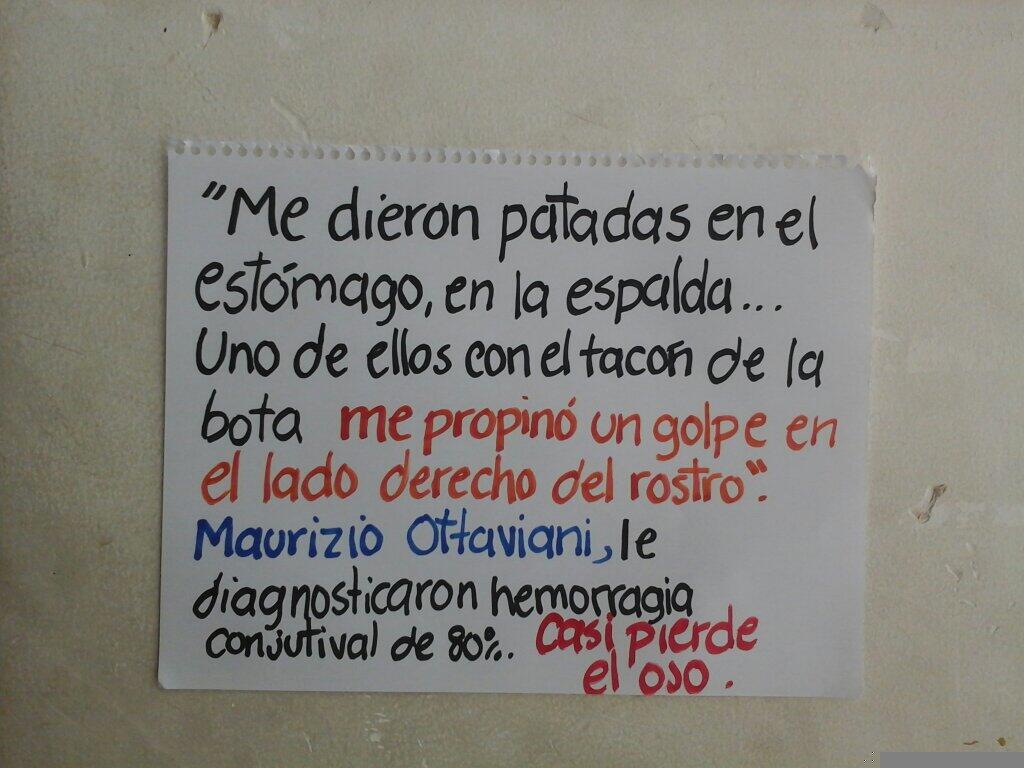 "Me dieron patadas en el
estómago, en la espalda...
Uno de ellos con el tacón de la
bota me propinó un golpe en
el lado derecho del rostro".
Maurizio Ottaviani, le
diagnosticaron hemorragia
conjutival de 80%. Casi pierde
el ojo.